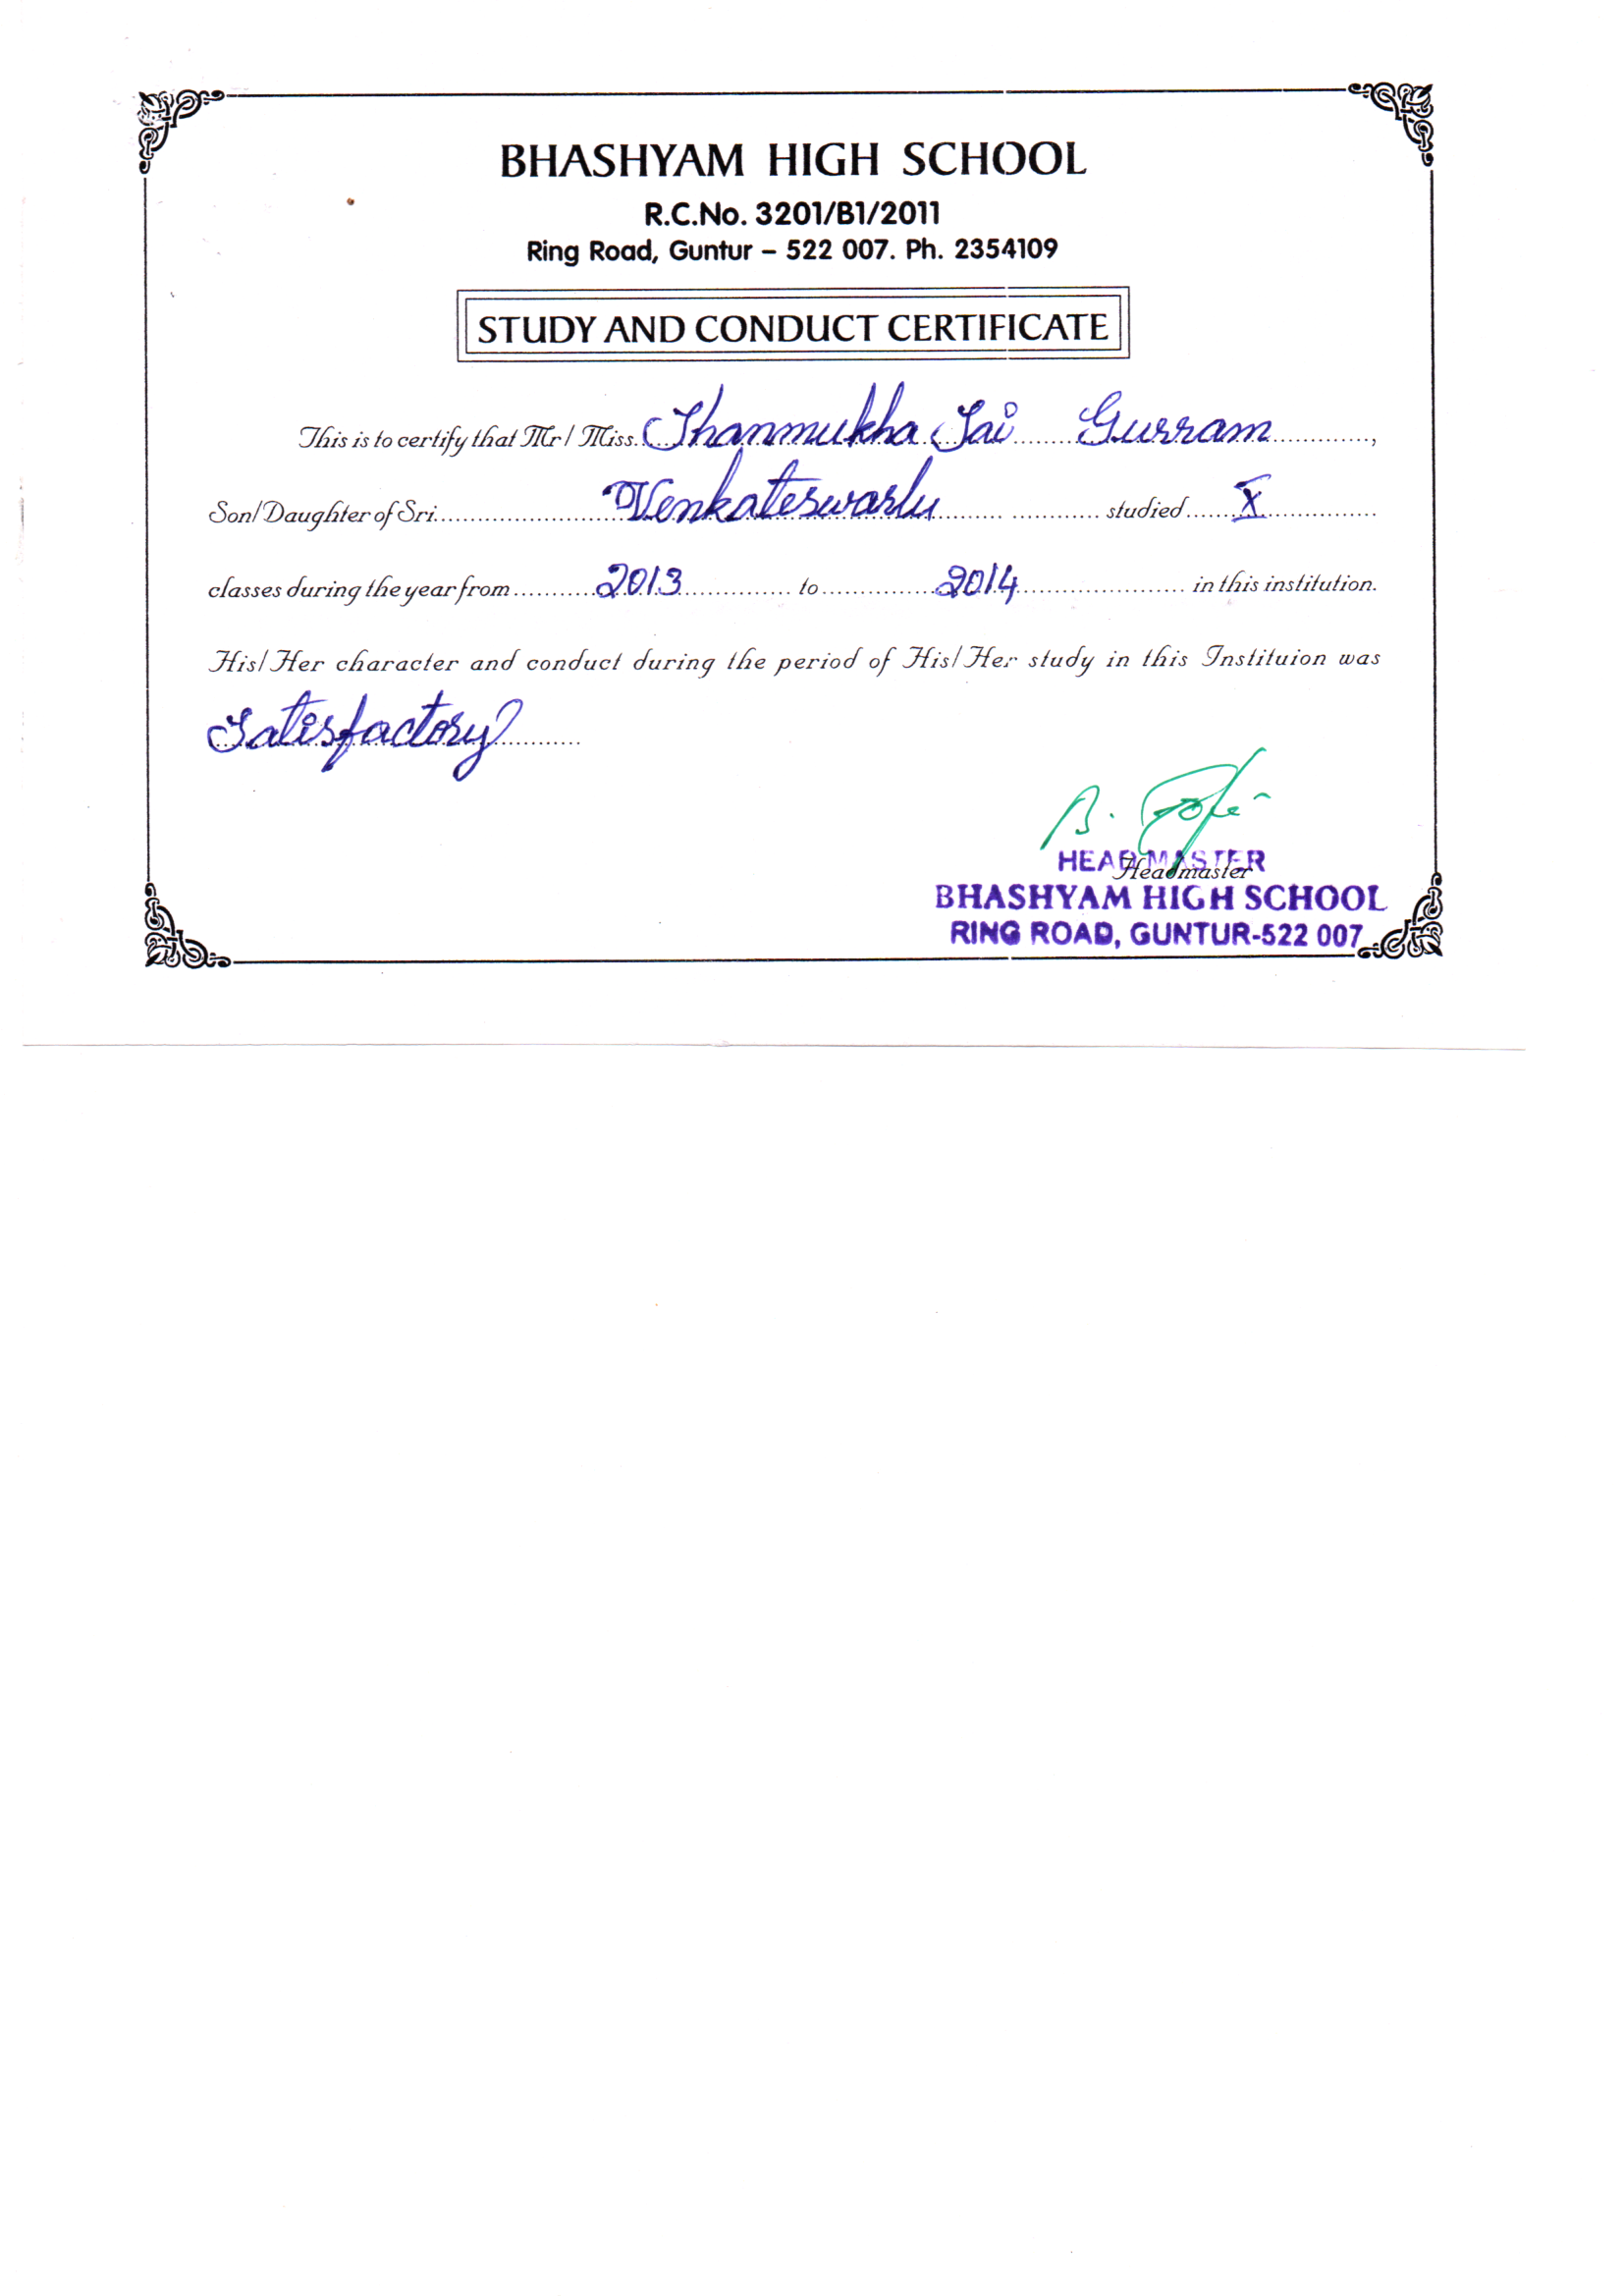 BHASHYAM HIGH SCHOOL
R.C.No. 3201/B1/2011
Ring Road, Guntur – 522 007. Ph. 2354109
STUDY AND CONDUCT CERTIFICATE
This is to certify that Mr / Miss. Shanmukha Sai Gurram ,
Son/Daughter of Sri. Venkateswarlu studied X
classes during the year from 2013 to 2014 in this institution.
His/Her character and conduct during the period of His/Her study in this Instituion was
Satisfactory
B. Gopi
HEAD MASTER
Headmaster
BHASHYAM HIGH SCHOOL
RING ROAD, GUNTUR-522 007